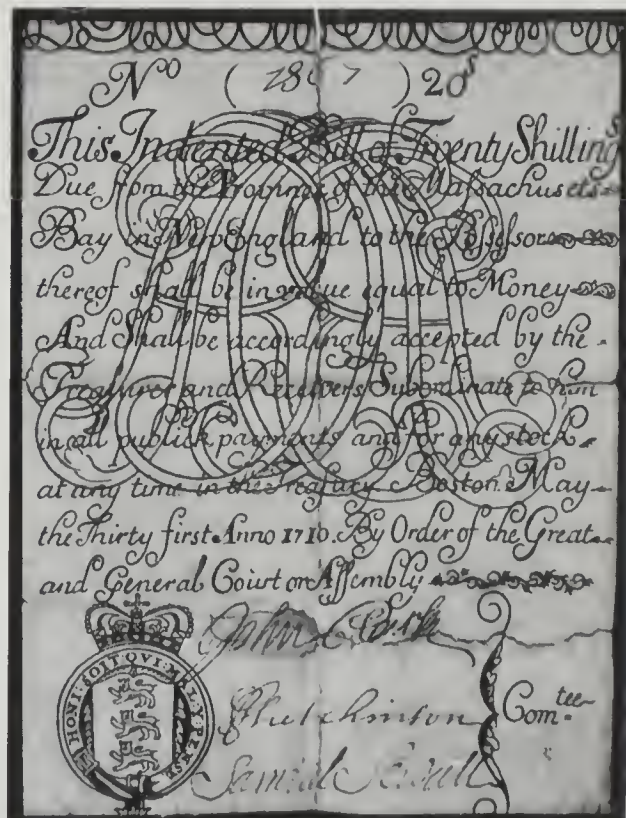 No ( 18 7 ) 20s
This Indented Bill of Twenty Shillings
Due from the Province of the Massachusets
Bay in New England to the Possessor
thereof shall be in value equal to Money
And Shall be accordingly accepted by the
Treasurer and Receivers Subordinate to him
in all publick payments and for any stock
at any time in the Treasury Boston May
the Thirty first Anno 1710. By Order of the Great
and General Court or Assembly
John Clark
Hutchinson
Samuel Sewall
Comtee
HONI·SOIT·QVI·MAL·Y·PENSE